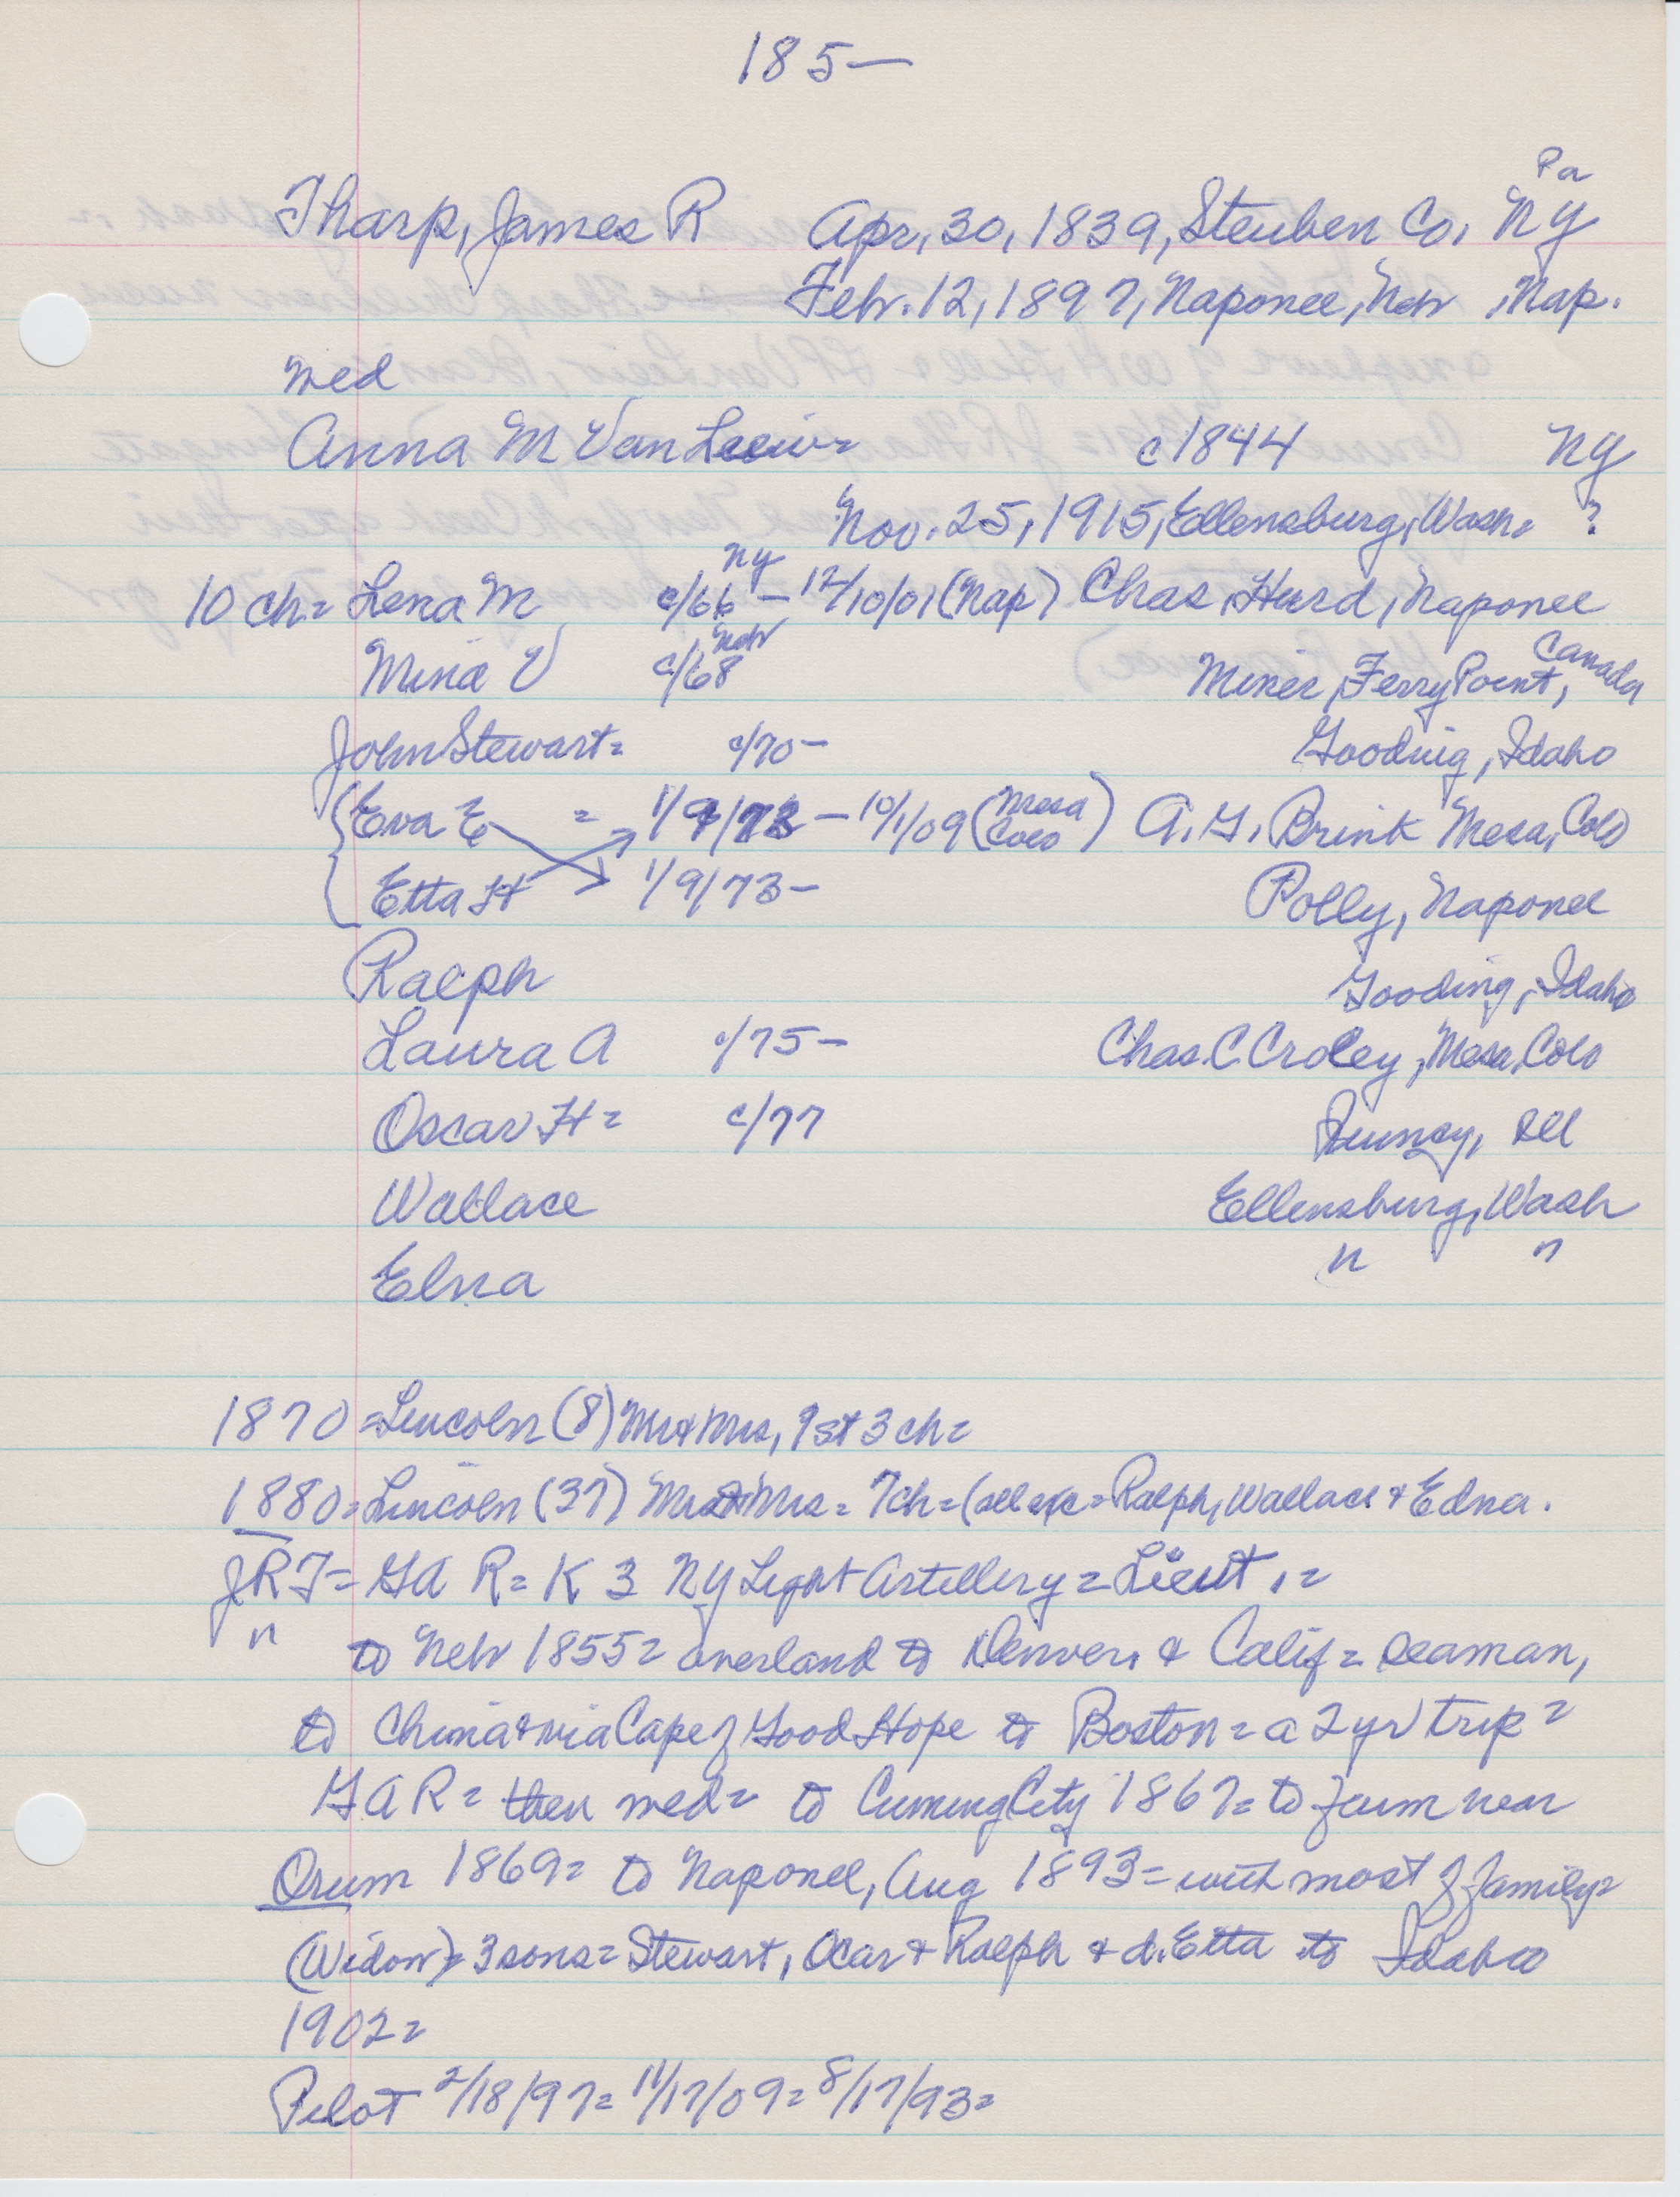 185—
Pa
Tharp, James R Apr, 30, 1839, Steuben Co, NY
Feb. 12, 1897, Naponee, Neb, Nap.
med
Anna M Van Leeiv= c1844 NY
Nov. 25, 1915, Ellensburg, Wash= ?
NY
10 ch= Lena M c/66 — 12/10/01 (Nap) Chas, Hurd, Naponee
Neb Canada
Mina V c/68 Miner, Ferry Point,
John Stewart= c/70— Gooding, Idaho
Eva E = 1/9/73 — 10/1/09 (Mesa Colo) A. G. Brink Mesa, Colo
Etta H 1/9/73— Polly, Naponee
Ralph Gooding, Idaho
Laura A c/75— Chas. C Croley, Mesa, Colo
Oscar H= c/77 Quincy, Ill
Wallace Ellensburg, Wash
Elna " "
1870=Lincoln (8) Mr+Mrs, 1st 3 ch=
1880=Lincoln (37) Mr+Mrs= 7ch=(all exc=Ralph, Wallace + Edna.
JRT= GAR= K 3 NY Light Artillery=Lieut.=
" to Neb 1855= overland to Denver, & Calif= seaman,
to China+via Cape of Good Hope to Boston=a 2 yr trip=
GAR= then med= to Cuming City 1867= to farm near
Orum 1869= to Naponee, Aug 1893=with most of family=
(Widow)= 3 sons=Stewart, Ocar + Ralph + d. Etta to Idaho
1902=
Pilot 2/18/97= 11/17/09= 8/17/93=